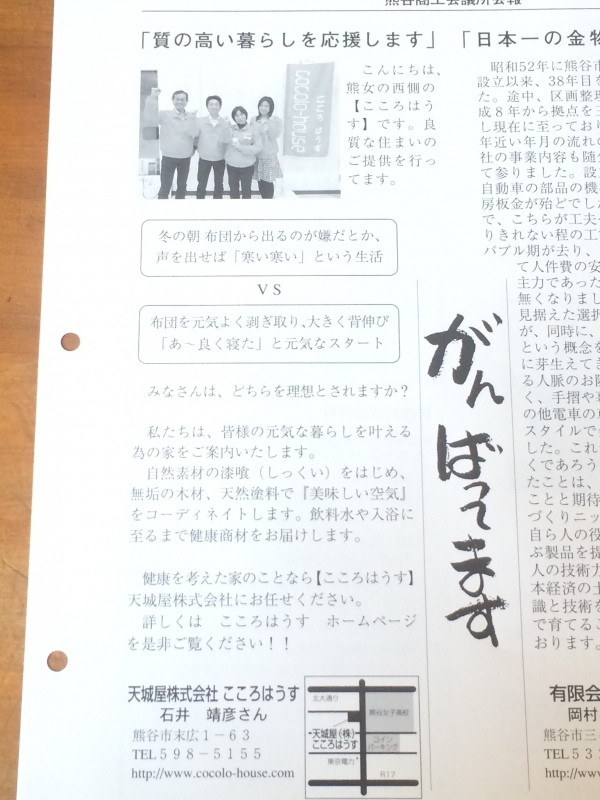 熊谷商工会議所会報
「質の高い暮らしを応援します」
cocolo-house
こころはうす
こんにちは、
熊女の西側の
【こころはう
す】です。良
質な住まいの
ご提供を行っ
てます。
冬の朝 布団から出るのが嫌だとか、
声を出せば「寒い寒い」という生活
VS
布団を元気よく剥ぎ取り、大きく背伸び
「あ〜良く寝た」と元気なスタート
みなさんは、どちらを理想とされますか？
私たちは、皆様の元気な暮らしを叶える
為の家をご案内いたします。
自然素材の漆喰（しっくい）をはじめ、
無垢の木材、天然塗料で『美味しい空気』
をコーディネイトします。飲料水や入浴に
至るまで健康商材をお届けします。
健康を考えた家のことなら【こころはうす】
天城屋株式会社にお任せください。
詳しくは　こころはうす　ホームページ
を是非ご覧ください！！
天城屋株式会社 こころはうす
石井　靖彦さん
熊谷市末広１－６３
TEL５９８－５１５５
http://www.cocolo-house.com
北大通り
熊谷女子高校
天城屋（株）
こころはうす
コイン
パーキング
東京電力
R17
がんばってます
「日本一の金物
昭和52年に熊谷市
設立以来、38年目を
た。途中、区画整理
成８年から拠点を三
し現在に至っており
年近い年月の流れの
社の事業内容も随分
て参りました。設立
自動車の部品の機
房板金が殆どでした
で、こちらが工夫
りきれない程の工
バブル期が去り、
て人件費の安
主力であった
無くなりまし
見据えた選択
が、同時に、
という概念を
に芽生えてき
る人脈のお陰
く、手摺や
の他電車の
スタイルで
した。これ
くであろう
たことは、
ことと期待
づくりニッ
自ら人の役
ぶ製品を提
人の技術力
本経済の土
識と技術を
で育てるこ
おります。
有限会
岡村
熊谷市三
TEL５３
http://ww